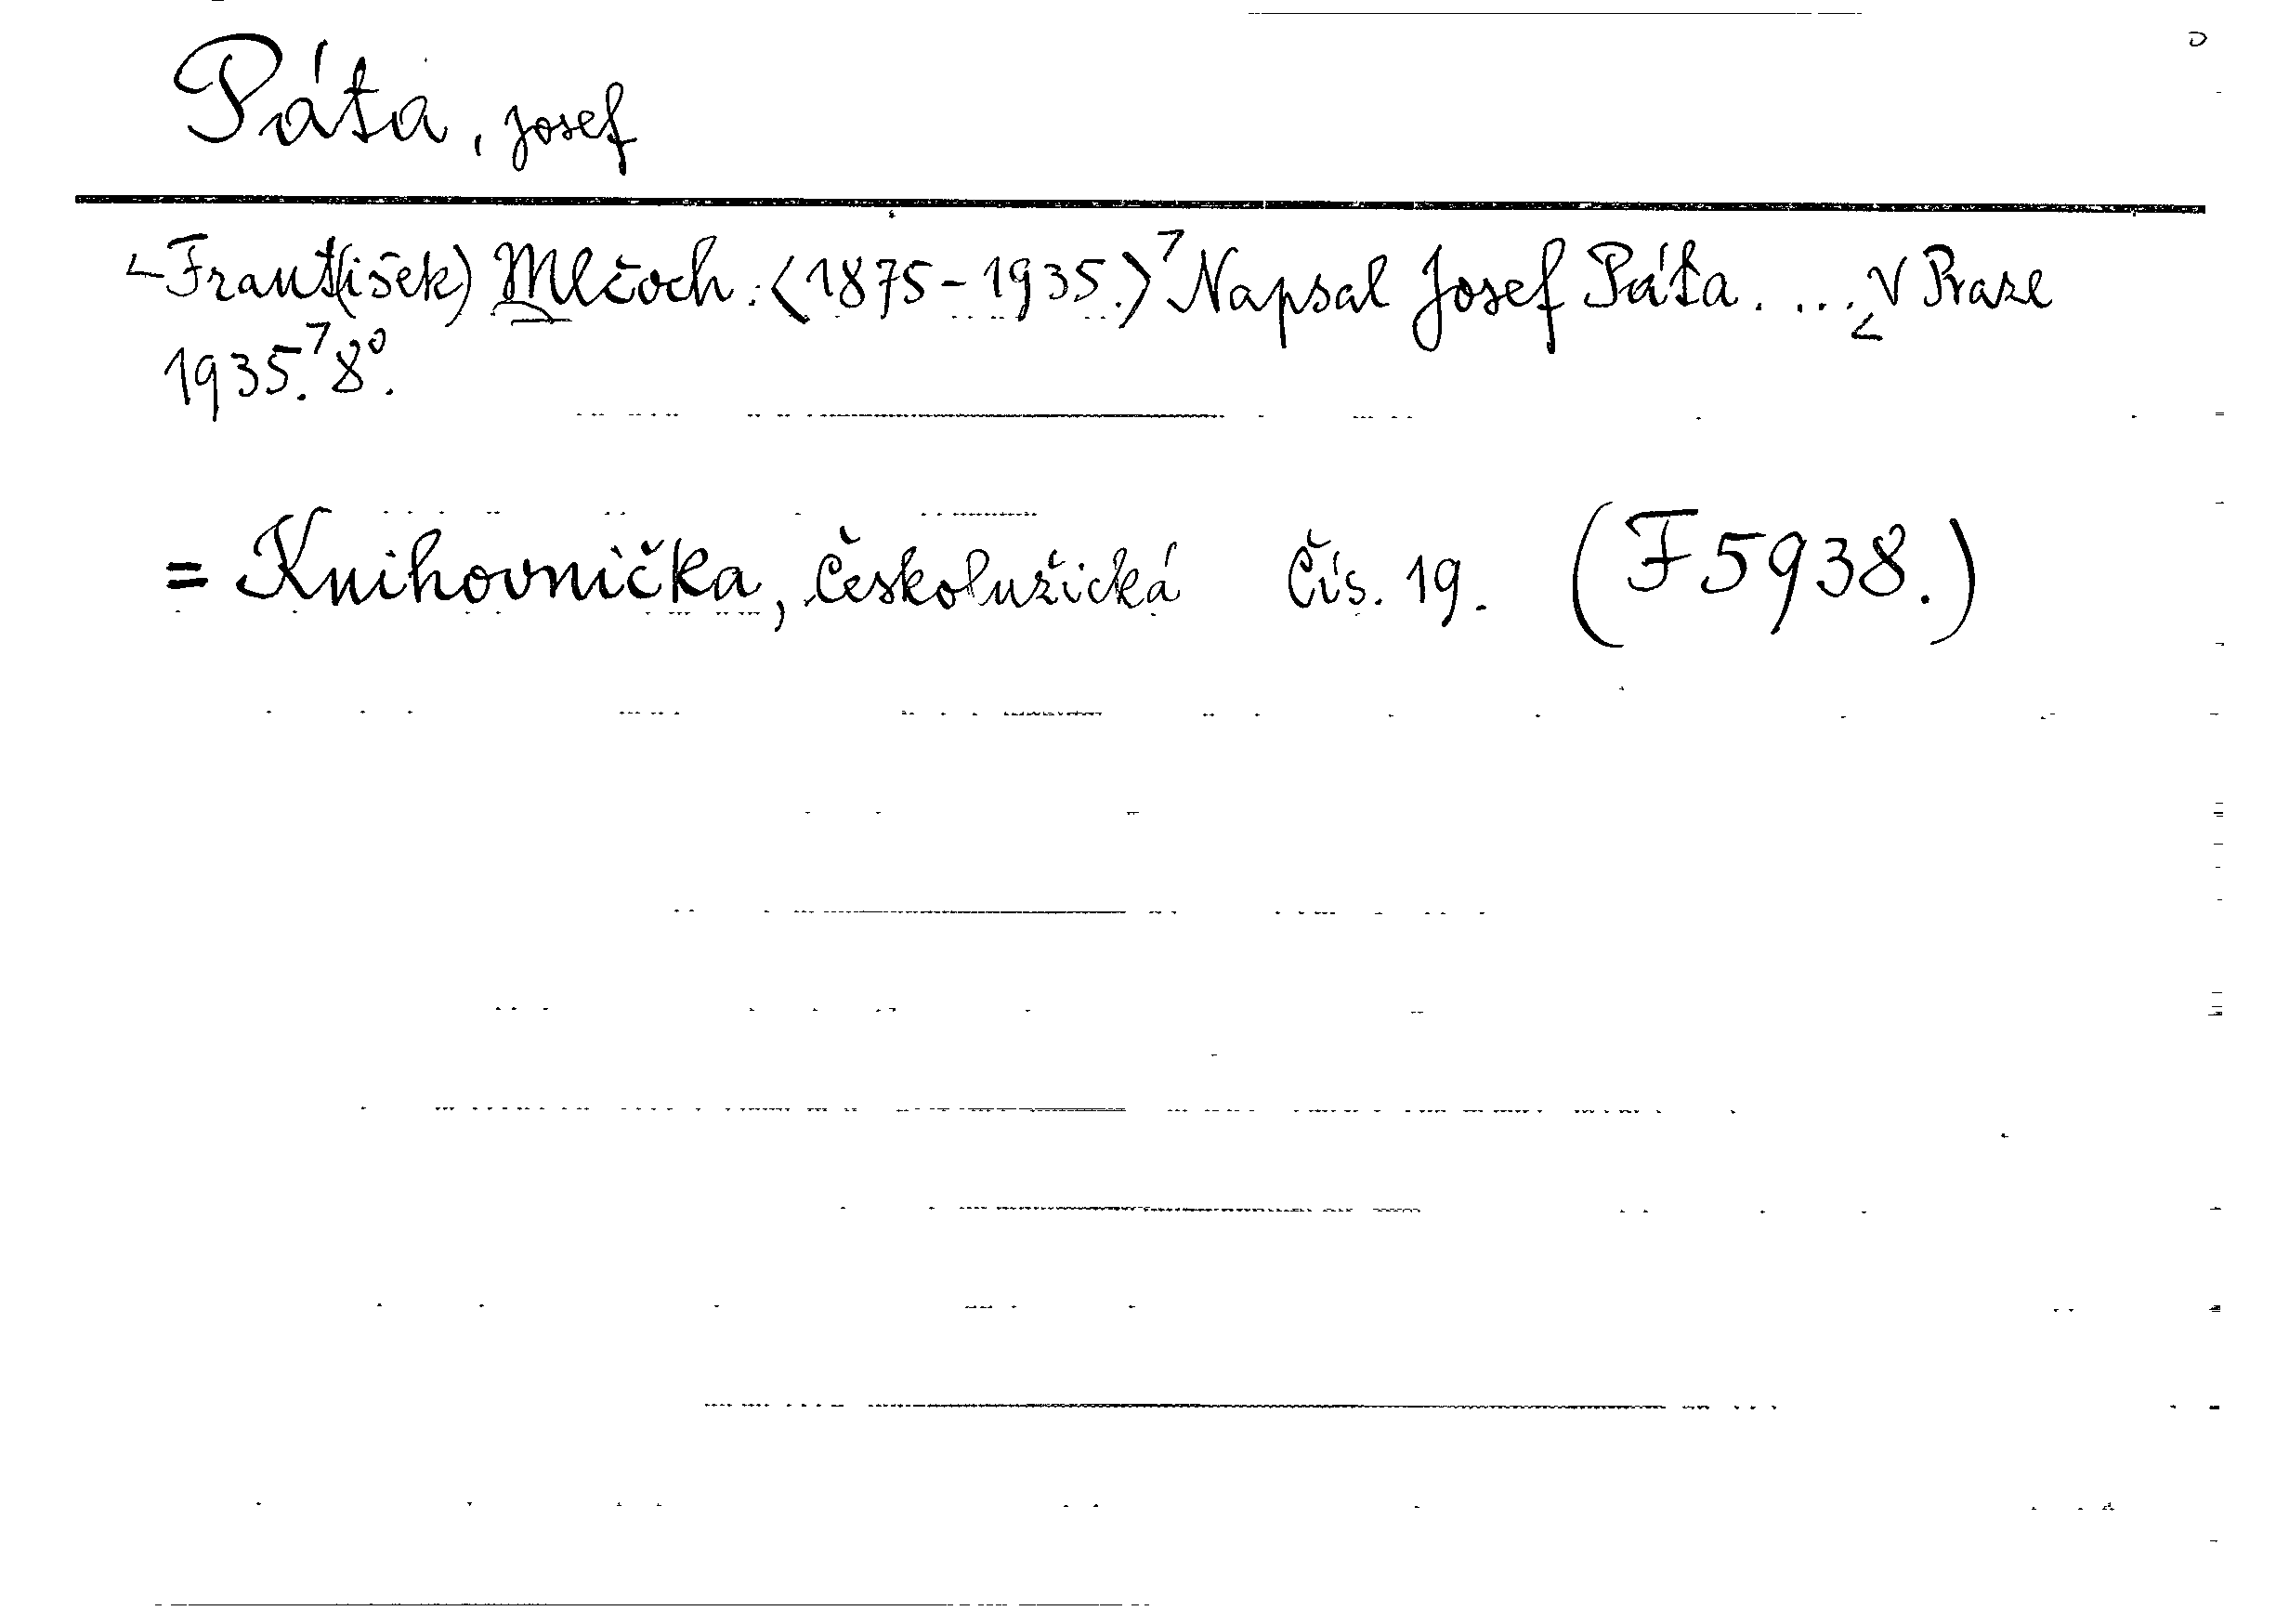 Páta, Josef
⌞Frant(išek) Mlčoch. <1875-1935.>⌝ Napsal Josef Páta. ... ⌞V Praze
1935.⌝ 8⁰.
= Knihovnička, Českolužická Čís. 19. (F 5938.)